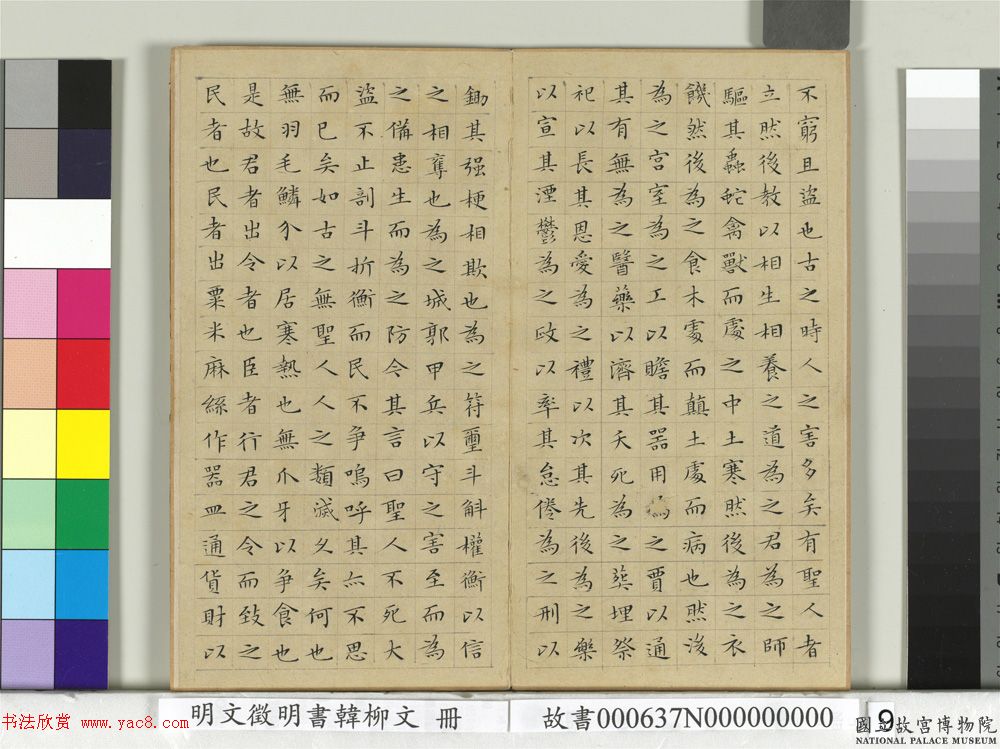 不窮且盜也古之時人之害多矣有聖人者
立然後教以相生相養之道為之君為之師
驅其蟲蛇禽獸而處之中土寒然後為之衣
饑然後為之食木處而顛土處而病也然後
為之宮室為之工以贍其器用為之賈以通
其有無為之醫藥以濟其夭死為之葬埋祭
祀以長其恩愛為之禮以次其先後為之樂
以宣其湮鬱為之政以率其怠倦為之刑以
鋤其强梗相欺也為之符璽斗斛權衡以信
之相奪也為之城郭甲兵以守之害至而為
之備患生而為之防今其言曰聖人不死大
盜不止剖斗折衡而民不争嗚呼其亦不思
而已矣如古之無聖人人之類滅久矣何也
無羽毛鱗介以居寒熱也無爪牙以争食也
是故君者出令者也臣者行君之令而致之
民者也民者出粟米麻絲作器皿通貨財以
明文徵明書韓柳文 冊
故書000637N000000000
9
書法欣賞 www.yac8.com
國立故宮博物院
NATIONAL PALACE MUSEUM